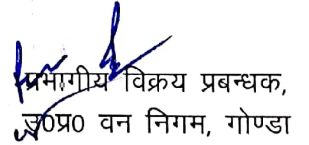 प्रभागीय विक्रय प्रबन्धक,
उ0प्र0 वन निगम, गोण्डा